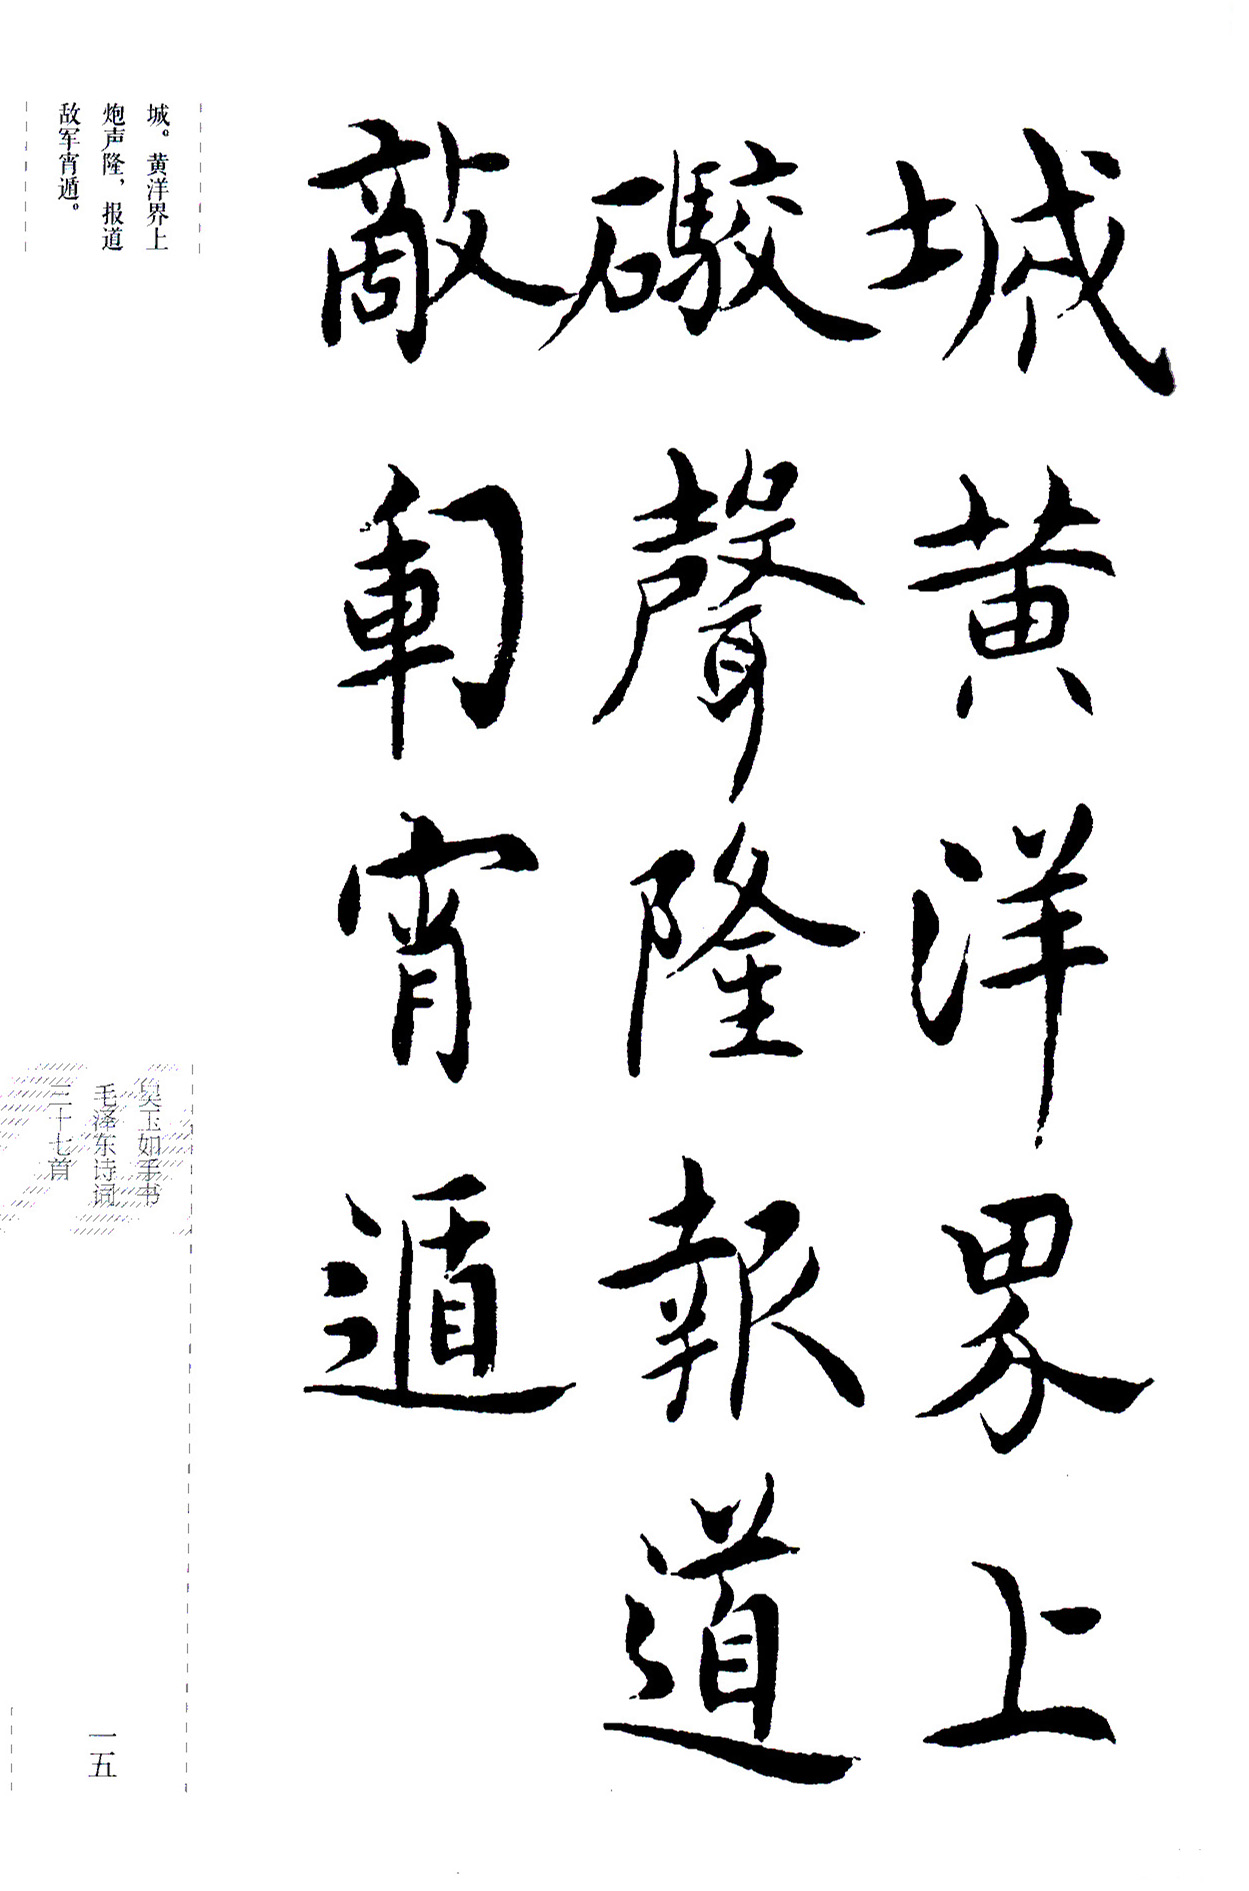 城黄洋界上
礮聲隆報道
敵軍宵遁
城。黄洋界上
炮声隆，报道
敌军宵遁。
吴玉如手书
毛泽东诗词
三十七首
一五